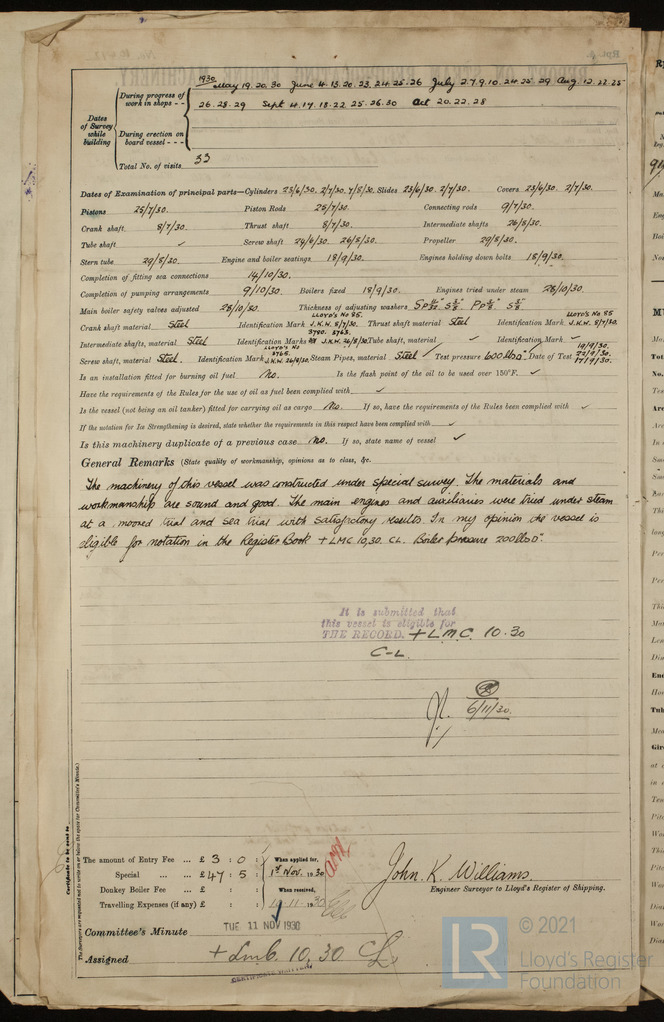 1930
May 19. 20. 30 June 4. 13. 20. 23. 24. 25. 26 July 2. 7. 9. 10. 24. 25. 29 Aug. 12. 22. 25
During progress of work in shops - - 26. 28. 29 Sept 4. 17. 18. 22. 25. 26. 30 Oct 20. 22. 28
Dates of Survey while building
During erection on board vessel - - -
Total No. of visits 33
Dates of Examination of principal parts—Cylinders 23/6/30. 2/7/30. 7/8/30. Slides 23/6/30. 2/7/30. Covers 23/6/30. 2/7/30.
Pistons 25/7/30. Piston Rods 25/7/30. Connecting rods 9/7/30.
Crank shaft 8/7/30. Thrust shaft 8/7/30. Intermediate shafts 26/8/30.
Tube shaft ✓ Screw shaft 24/6/30. 26/8/30. Propeller 29/8/30.
Stern tube 29/8/30. Engine and boiler seatings 18/9/30. Engines holding down bolts 18/9/30.
Completion of fitting sea connections 14/10/30.
Completion of pumping arrangements 9/10/30. Boilers fixed 18/9/30. Engines tried under steam 28/10/30.
Main boiler safety valves adjusted 28/10/30. Thickness of adjusting washers
Crank shaft material Steel Identification Mark LLOYD'S No 85. J.K.W. 8/7/30. Thrust shaft material Steel Identification Mark LLOYD'S No 85 J.K.W. 8/7/30.
Intermediate shafts, material Steel Identification Marks 3780. 3763. J.K.W. 26/8/30. Tube shaft, material ✓ Identification Mark ✓
Screw shaft, material Steel. Identification Mark LLOYD'S No 3765. J.K.W. 26/8/30. Steam Pipes, material Steel ✓ Test pressure 600 lbs □" Date of Test 19/9/30. 22/9/30. 17/9/30.
Is an installation fitted for burning oil fuel No. Is the flash point of the oil to be used over 150°F. ✓
Have the requirements of the Rules for the use of oil as fuel been complied with ✓
Is the vessel (not being an oil tanker) fitted for carrying oil as cargo No. If so, have the requirements of the Rules been complied with ✓
If the notation for Ice Strengthening is desired, state whether the requirements in this respect have been complied with ✓
Is this machinery duplicate of a previous case No. If so, state name of vessel ✓
General Remarks (State quality of workmanship, opinions as to class, &c.
The machinery of this vessel was constructed under special survey. The materials and
workmanship are sound and good. The main engines and auxiliaries were tried under steam
at a moored trial and sea trial with satisfactory results. In my opinion the vessel is
eligible for notation in the Register Book + LMC 10,30. CL. Boiler pressure 200 lbs □".
It is submitted that
this vessel is eligible for
THE RECORD. + LMC. 10.30
C-L.
6/11/30.
Certificate to be sent to
(The Surveyors are requested not to write on or below the space for Committee's Minute.)
The amount of Entry Fee ... £ 3 : 0 : When applied for,
Special ... ... £ 47 : 5 : 1st Nov. 1930
Donkey Boiler Fee ... £ : : When received,
Travelling Expenses (if any) £ : : 11. 1930
John. K. Williams.
Engineer Surveyor to Lloyd's Register of Shipping.
Committee's Minute TUE 11 NOV 1930
Assigned + LMC. 10,30 CL
© 2021
LR
Lloyd's Register
Foundation